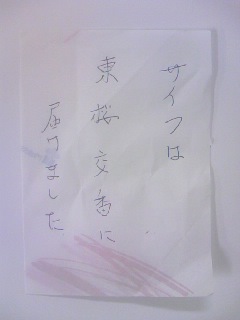 サイフは
東桜交番に
届けました